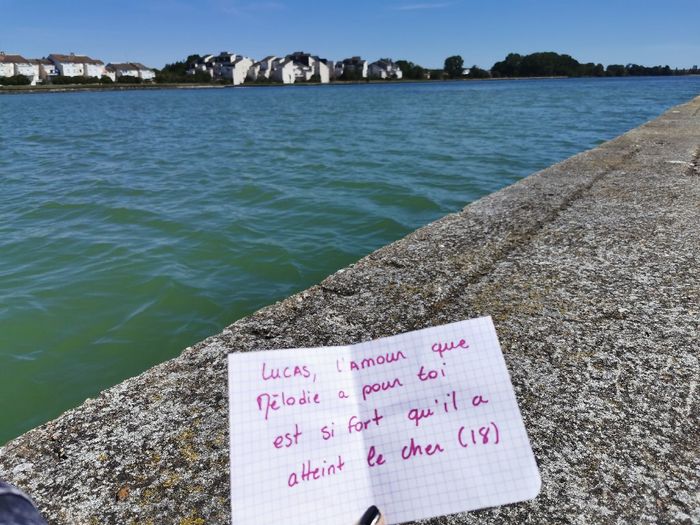 LUCAS, l'AMOUR que
Mélodie a pour toi
est si fort qu'il a
atteint le cher (18)